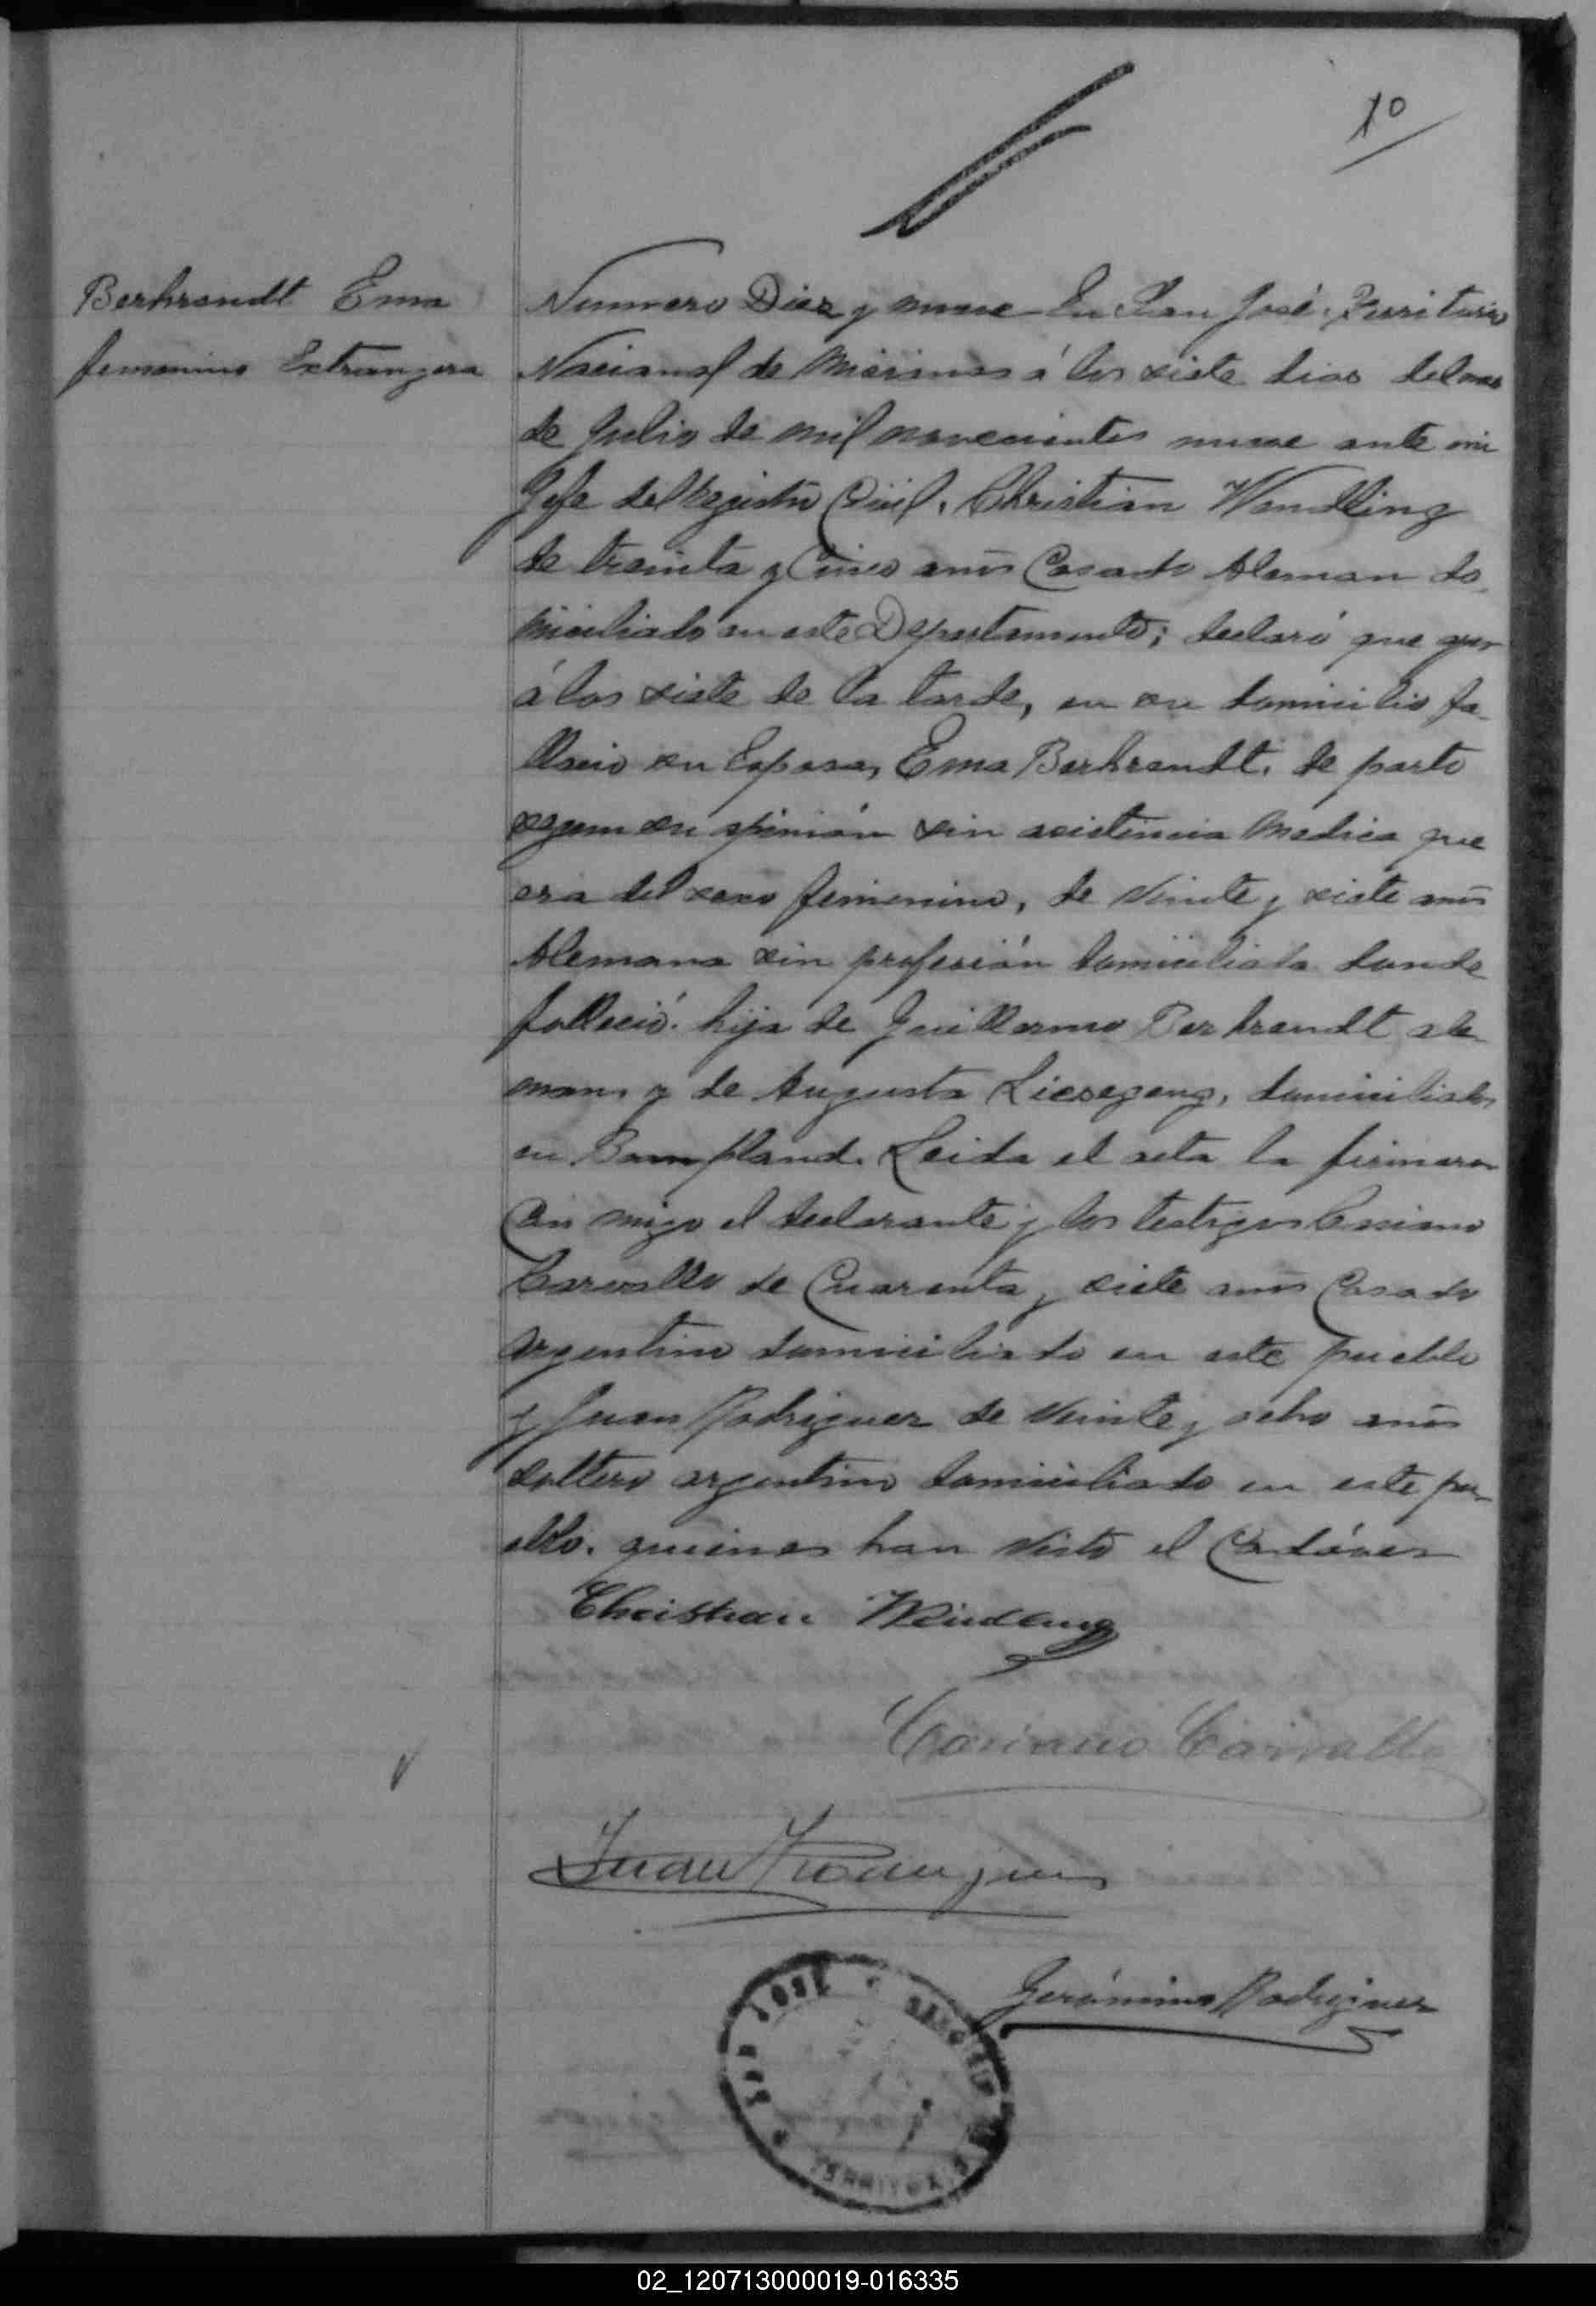 10
Berhrendt Ema
femenino Extrangera
Numero Diez y nueve En San José, Territorio
Nacional de Misiones á los siete dias del mes
de Julio de mil novecientos nueve ante mi
Jefe del Registro Civil, Christian Wendling
de treinta y Cinco años Casado Aleman do-
miciliado en este Departamento; declaró que ayer
á las siete de la tarde, en su domicilio fa-
llecio su Esposa, Ema Berhrendt, de parto
segun su opinión sin asistencia Medica que
era del sexo femenino, de Veinte y siete años
Alemana sin profesión domiciliada donde
falleció. hija de Guillermo Berhrendt ale-
man, y de Augusta Liesegang, domiciliados
en Bompland. Leida el acta la firmaron
Con migo el declarante y los testigos Casiano
Carvallo de Cuarenta y siete años Casado
argentino domiciliado en este pueblo
y Juan Rodriguez de Veinte y ocho años
soltero argentino domiciliado en este pu-
eblo. quienes han Visto el Cadáver
Christian Wendling
Casiano Carvallo
Juan Rodriguez
Gerónimo Rodriguez
SAN JOSÉ
TERRITORIO
02_120713000019-016335